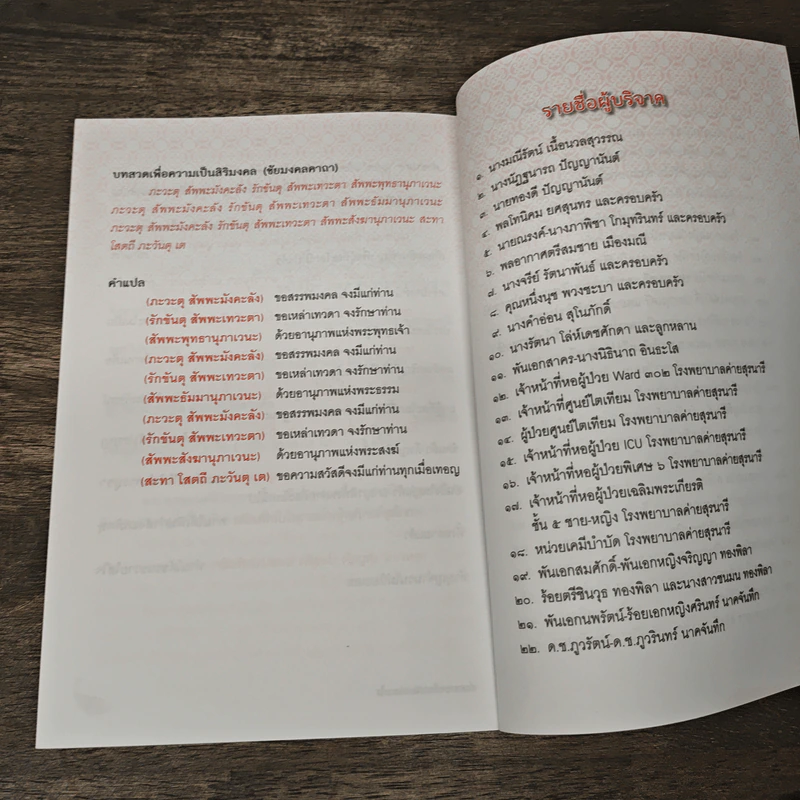 บทสวดเพื่อความเป็นสิริมงคล (ชัยมงคลคาถา)
ภะวะตุ สัพพะมังคะลัง รักขันตุ สัพพะเทวะตา สัพพะพุทธานุภาเวนะ
ภะวะตุ สัพพะมังคะลัง รักขันตุ สัพพะเทวะตา สัพพะธัมมานุภาเวนะ
ภะวะตุ สัพพะมังคะลัง รักขันตุ สัพพะเทวะตา สัพพะสังฆานุภาเวนะ สะทา
โสตถี ภะวันตุ เต
คำแปล
(ภะวะตุ สัพพะมังคะลัง) ขอสรรพมงคล จงมีแก่ท่าน
(รักขันตุ สัพพะเทวะตา) ขอเหล่าเทวดา จงรักษาท่าน
(สัพพะพุทธานุภาเวนะ) ด้วยอานุภาพแห่งพระพุทธเจ้า
(ภะวะตุ สัพพะมังคะลัง) ขอสรรพมงคล จงมีแก่ท่าน
(รักขันตุ สัพพะเทวะตา) ขอเหล่าเทวดา จงรักษาท่าน
(สัพพะธัมมานุภาเวนะ) ด้วยอานุภาพแห่งพระธรรม
(ภะวะตุ สัพพะมังคะลัง) ขอสรรพมงคล จงมีแก่ท่าน
(รักขันตุ สัพพะเทวะตา) ขอเหล่าเทวดา จงรักษาท่าน
(สัพพะสังฆานุภาเวนะ) ด้วยอานุภาพแห่งพระสงฆ์
(สะทา โสตถี ภะวันตุ เต) ขอความสวัสดีจงมีแก่ท่านทุกเมื่อเทอญ
รายชื่อผู้บริจาค
๑. นางมณีรัตน์ เนื้อนวลสุวรรณ
๒. นางนัฏฐนารถ ปัญญานันต์
๓. นายทองดี ปัญญานันต์
๔. พลโทนิคม ยศสุนทร และครอบครัว
๕. นายณรงค์-นางภาพิชา โกมุทรินทร์ และครอบครัว
๖. พลอากาศตรีสมชาย เมืองมณี
๗. นางจรีย์ รัตนาพันธ์ และครอบครัว
๘. คุณหนึ่งนุช พวงชะบา และครอบครัว
๙. นางคำอ่อน สุโนภักดิ์
๑๐. นางรัตนา โล่ห์เดชศักดา และลูกหลาน
๑๑. พันเอกสาคร-นางนิธินาถ อินธะโส
๑๒. เจ้าหน้าที่หอผู้ป่วย Ward ๓๐๒ โรงพยาบาลค่ายสุรนารี
๑๓. เจ้าหน้าที่ศูนย์ไตเทียม โรงพยาบาลค่ายสุรนารี
๑๔. ผู้ป่วยศูนย์ไตเทียม โรงพยาบาลค่ายสุรนารี
๑๕. เจ้าหน้าที่หอผู้ป่วย ICU โรงพยาบาลค่ายสุรนารี
๑๖. เจ้าหน้าที่หอผู้ป่วยพิเศษ ๖ โรงพยาบาลค่ายสุรนารี
๑๗. เจ้าหน้าที่หอผู้ป่วยเฉลิมพระเกียรติ
ชั้น ๕ ชาย-หญิง โรงพยาบาลค่ายสุรนารี
๑๘. หน่วยเคมีบำบัด โรงพยาบาลค่ายสุรนารี
๑๙. พันเอกสมศักดิ์-พันเอกหญิงจริญญา ทองพิลา
๒๐. ร้อยตรีชินวุธ ทองพิลา และนางสาวชนมน ทองพิลา
๒๑. พันเอกนพรัตน์-ร้อยเอกหญิงศรินทร์ นาคจันทึก
๒๒. ด.ช.ภูวรัตน์-ด.ช.ภูวรินทร์ นาคจันทึก